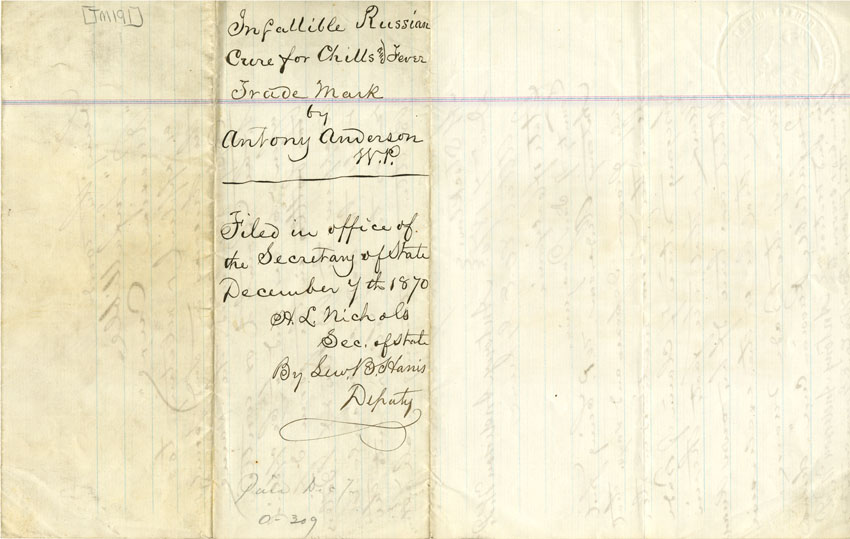 [TM191]
Infallible Russian
Cure for Chills & Fever
Trade Mark
by
Antony Anderson
W.P.
Filed in office of
the Secretary of State
December 7th 1870
H. L. Nichols
Sec. of State
By Lew. B. Harris
Deputy
Dec 7
309